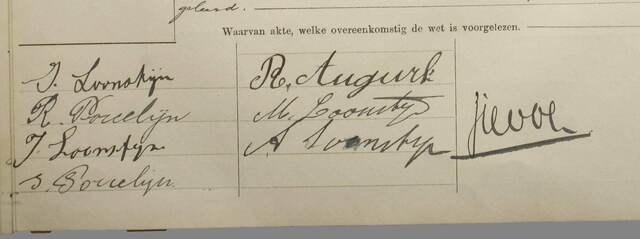 geleerd.
Waarvan akte, welke overeenkomstig de wet is voorgelezen.
J. Loonstijn
R. Porcelijn
J. Loonstijn
S. Porcelijn.
R. Augurk
M. Loonstijn
A. Loonstijn